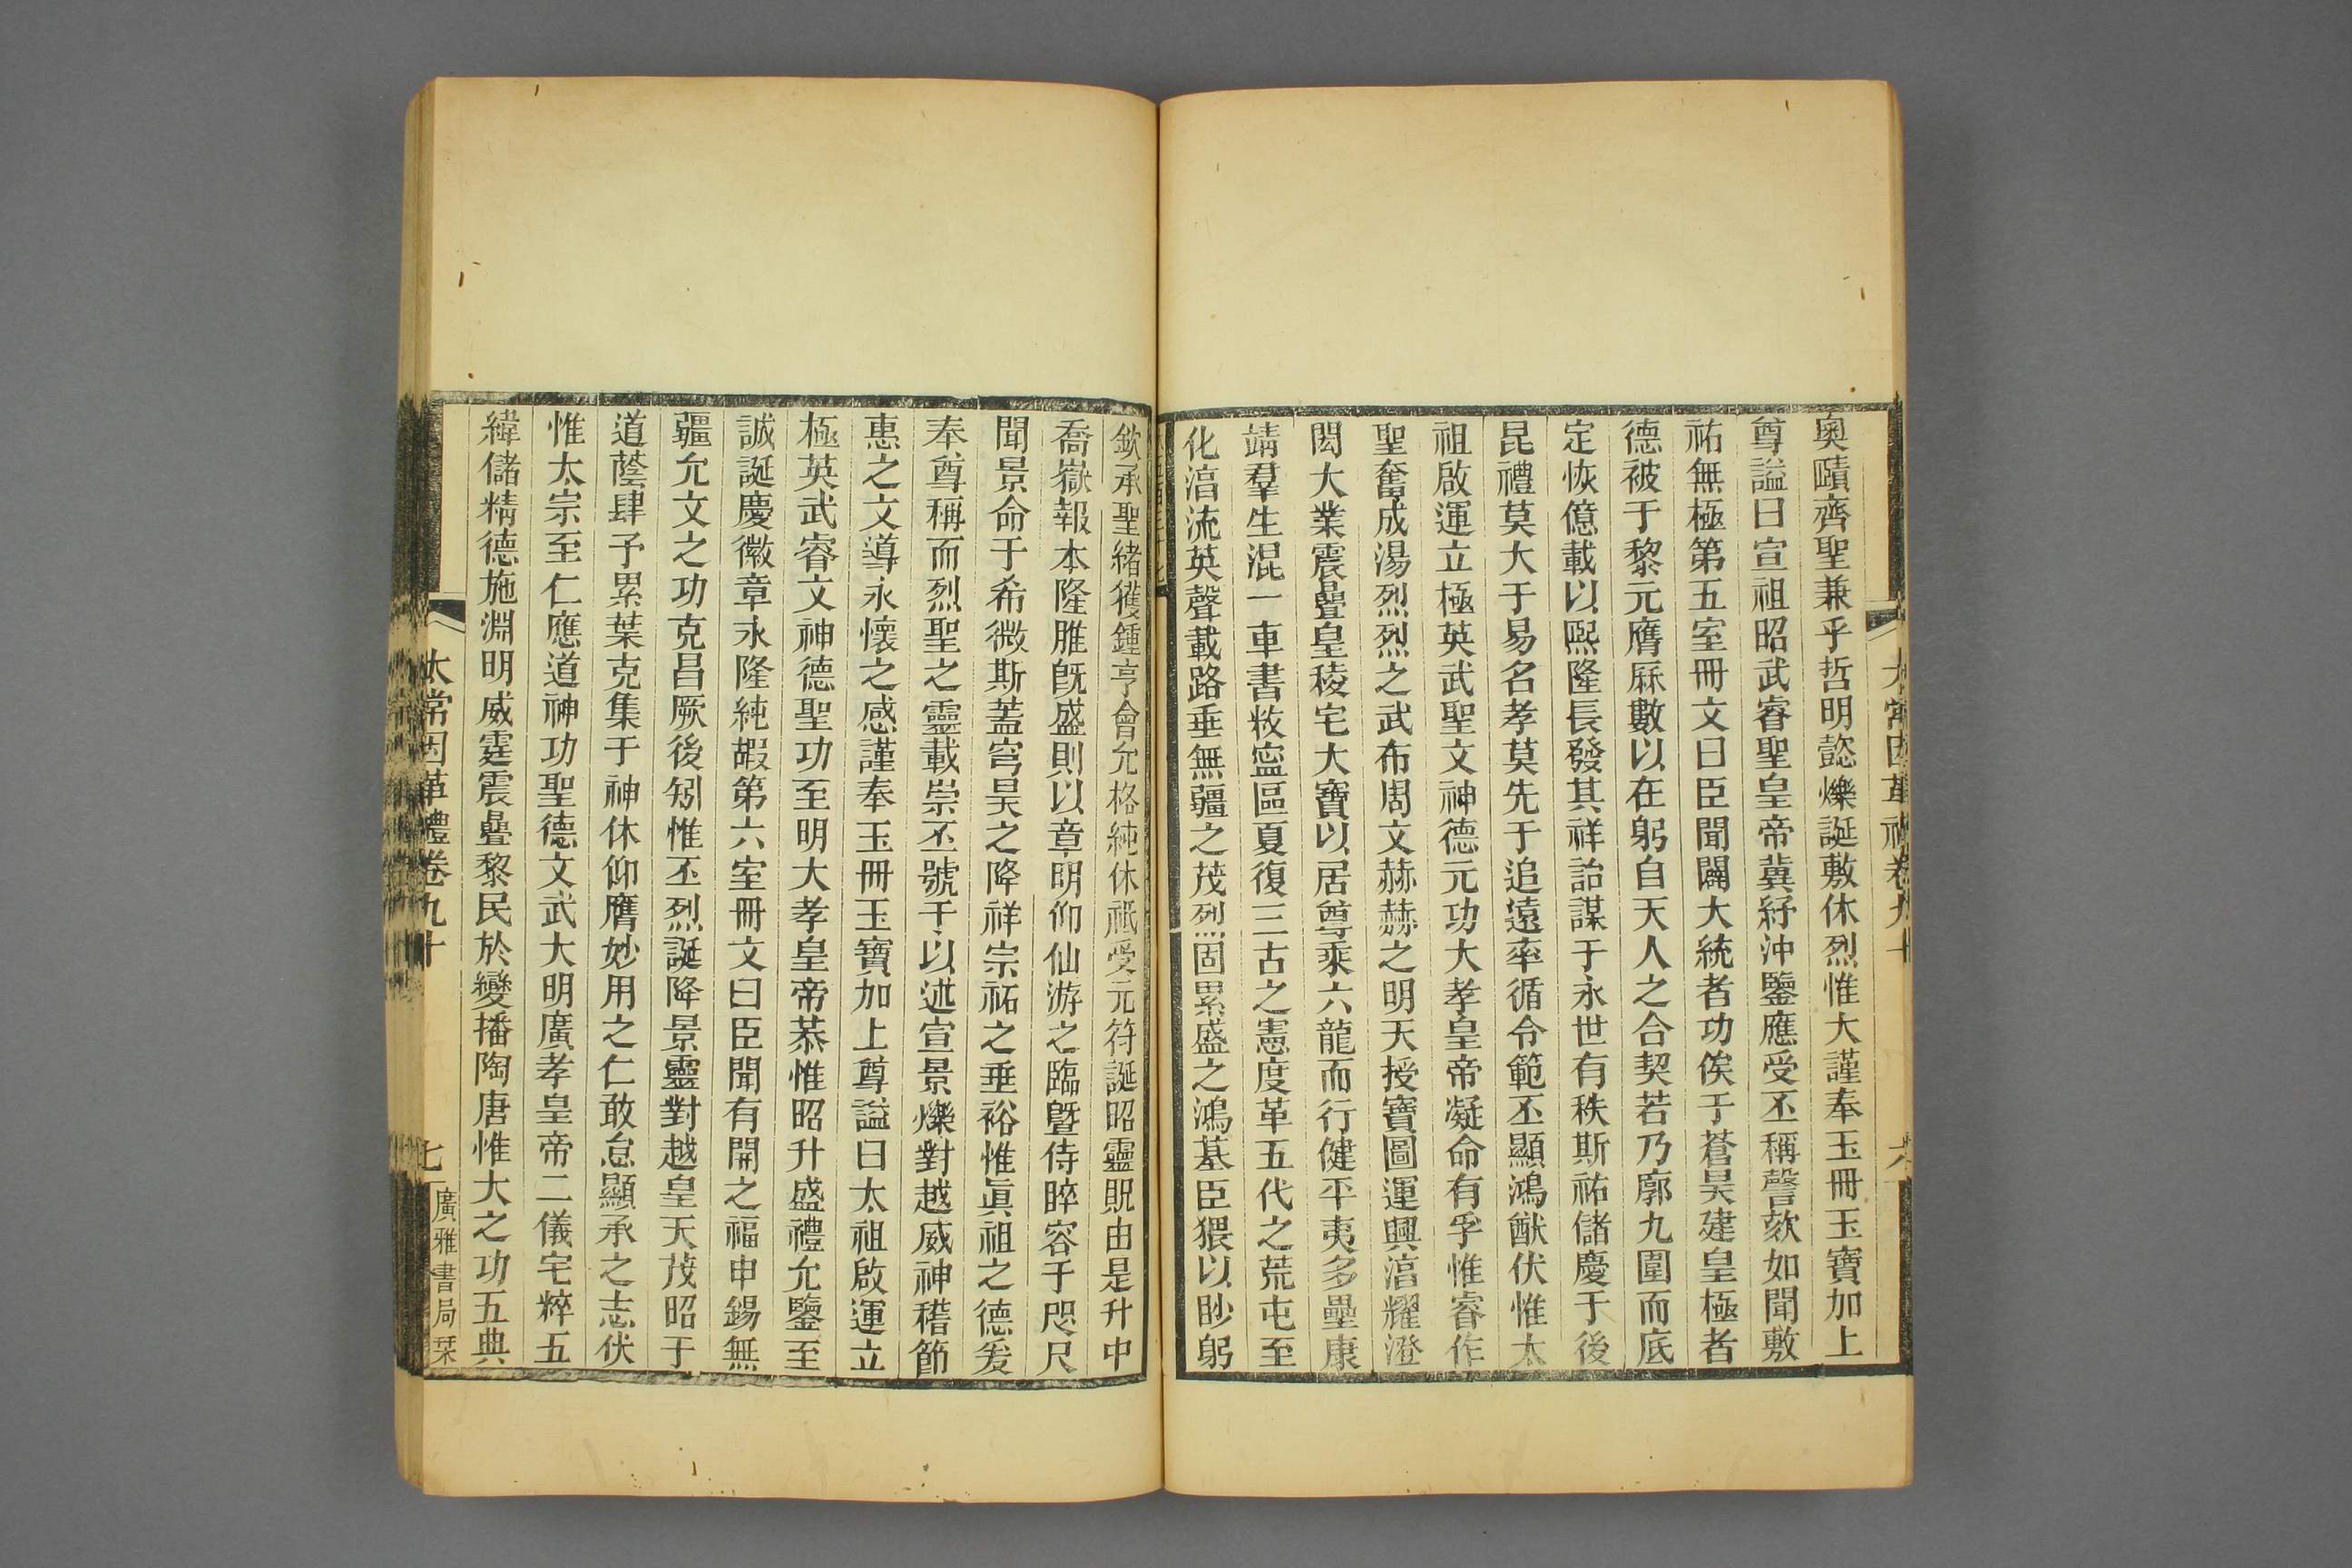 太常因革禮卷九十
六
奧賾齊聖兼乎哲明懿爍誕敷休烈惟大謹奉玉冊玉寶加上
尊謚曰宣祖昭武睿聖皇帝冀紓沖鑒應受丕稱謦欬如聞敷
祐無極第五室冊文曰臣聞闢大統者功俟于蒼昊建皇極者
德被于黎元膺厤數以在躬自天人之合契若乃廓九圍而底
定恢億載以熙隆長發其祥詒謀于永世有秩斯祐儲慶于後
昆禮莫大于易名孝莫先于追遠率循令範丕顯鴻猷伏惟太
祖啟運立極英武聖文神德元功大孝皇帝凝命有孚惟睿作
聖奮成湯烈烈之武布周文赫赫之明天授寶圖運興湻耀澄
閎大業震曡皇稜宅大寶以居尊乘六龍而行健平夷多壘康
靖羣生混一車書敉寍區夏復三古之憲度革五代之荒屯至
化湻流英聲載路垂無疆之茂烈固累盛之鴻基臣猥以眇躬
欽承聖緒獲鍾亨會允格純休祗受元符誕昭靈貺由是升中
喬嶽報本隆脽旣盛則以章明仰仙游之臨曁侍睟容于咫尺
聞景命于希微斯蓋穹昊之降祥宗祏之垂裕惟眞祖之德爰
奉尊稱而烈聖之靈載崇丕號于以述宣景爍對越威神稽節
惠之文導永懷之感謹奉玉冊玉寶加上尊謚曰太祖啟運立
極英武睿文神德聖功至明大孝皇帝恭惟昭升盛禮允鑒至
誠誕慶徽章永隆純嘏第六室冊文曰臣聞有開之福申錫無
疆允文之功克昌厥後矧惟丕烈誕降景靈對越皇天茂昭于
道蔭肆予累葉克集于神休仰膺妙用之仁敢怠顯承之志伏
惟太宗至仁應道神功聖德文武大明廣孝皇帝二儀宅粹五
緯儲精德施淵明威霆震曡黎民於變播陶唐惟大之功五典
太常因革禮卷九十
七
廣雅書局栞